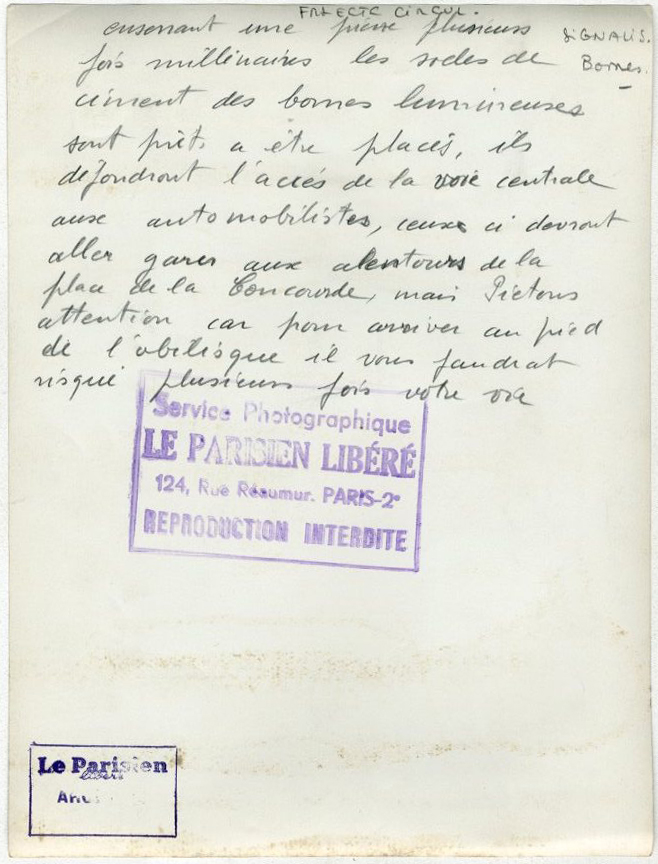 CIRCUL.
SIGNALIS.
Bornes.
enserrant une pierre plusieurs
fois millinaires les socles de
ciment des bornes lumineuses
sont prêts a être placés, ils
defendront l'accés de la voie centrale
aux automobilistes, ceux ci devront
aller garer aux alentours de la
place de la Concourde, mais Pietons
attention car pour arriver au pied
de l'obilisque il vous faudrat
risqué plusieurs fois votre vie
Service Photographique
LE PARISIEN LIBÉRÉ
124, Rue Réaumur. PARIS-2e
REPRODUCTION INTERDITE
Le Parisien
libéré